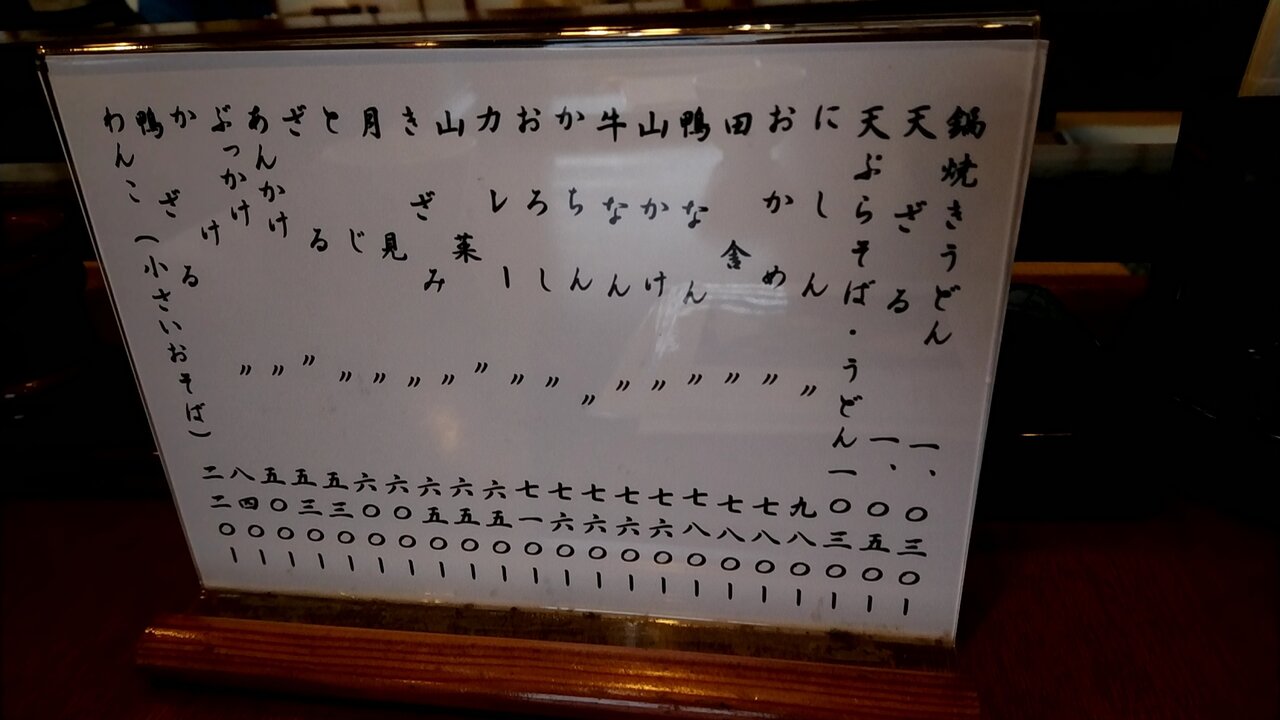 鍋焼きうどん 一、〇三〇ー
天ざる 一、〇五〇ー
天ぷらそば・うどん 一〇三〇ー
にしん 〃 九八〇ー
おかめ 〃 七八〇ー
田舎 〃 七八〇ー
鴨なん 〃 七八〇ー
山かけ 〃 七六〇ー
牛なん 〃 七六〇ー
かちん 〃 七六〇ー
おろし 〃 七六〇ー
カレー 〃 七一〇ー
山菜 〃 六五〇ー
きざみ 〃 六五〇ー
月見 〃 六五〇ー
とじ 〃 六〇〇ー
ざる 〃 六〇〇ー
あんかけ 〃 五三〇ー
ぶっかけ 〃 五三〇ー
かけ 〃 五〇〇ー
鴨ざる 八四〇ー
わんこ(小さいおそば) 二二〇ー